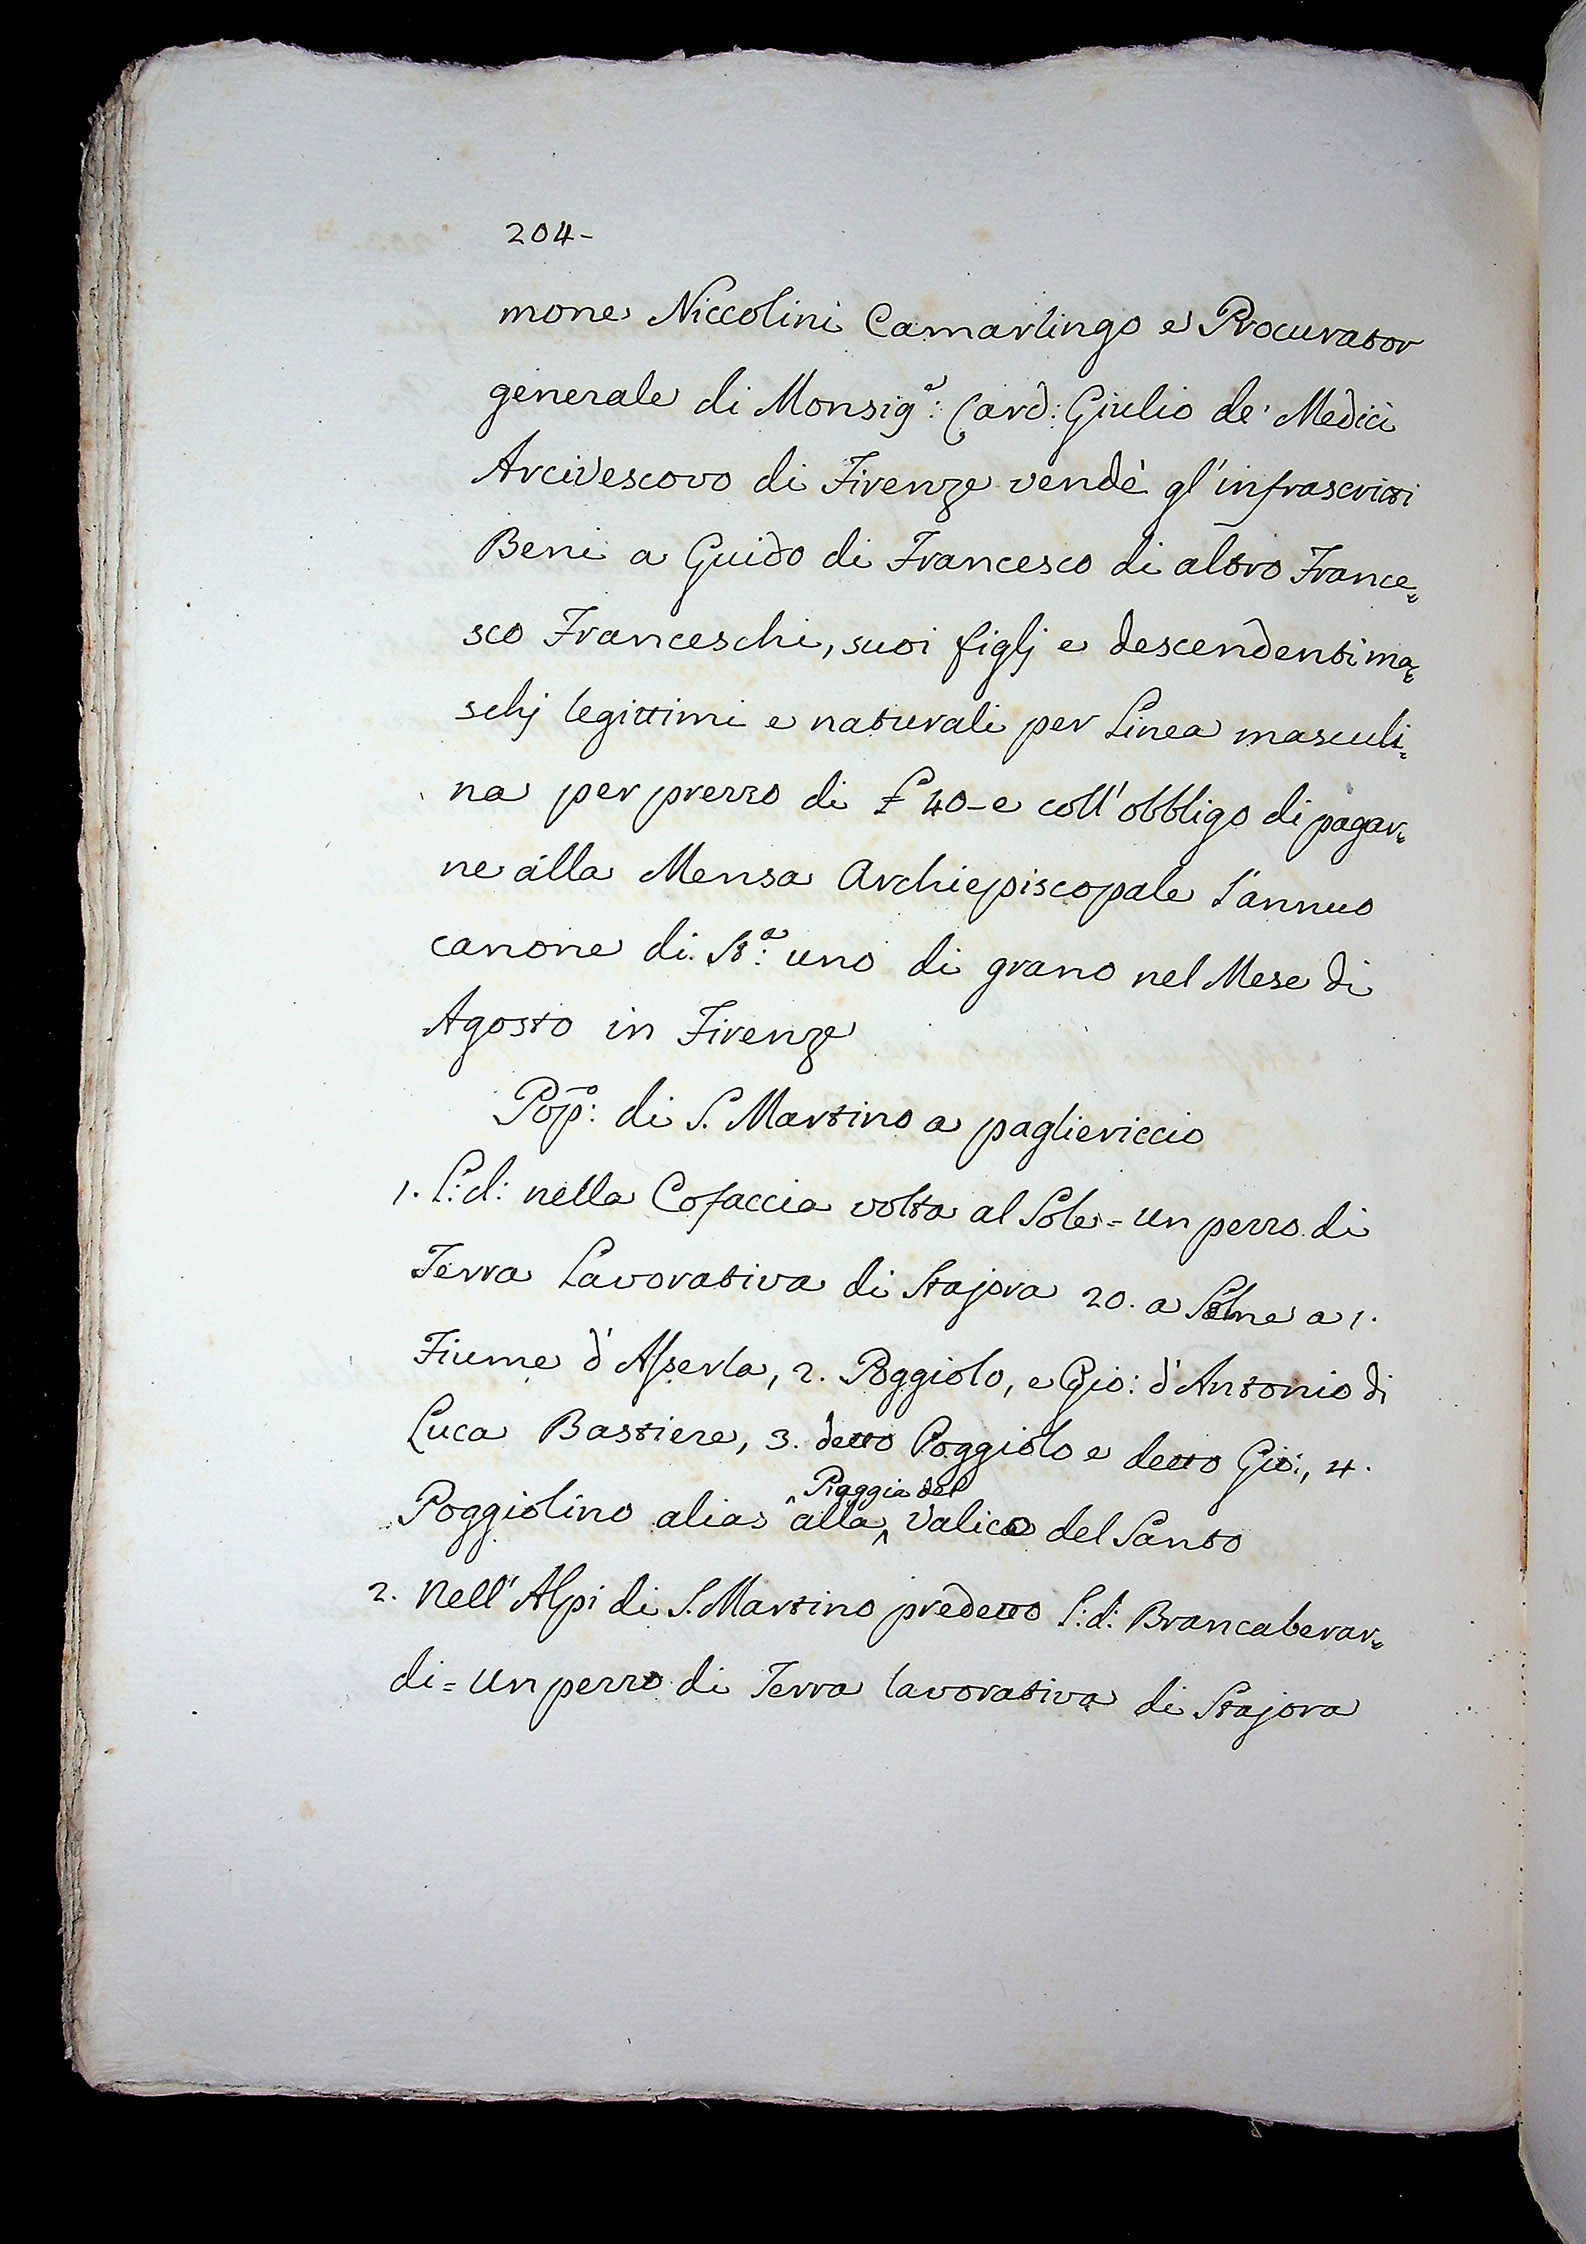 204-
mone Niccolini Camarlingo e Procurator
generale di Monsig.e: Card: Giulio de' Medici
Arcivescovo di Firenze vendè gl'infrascritti
Beni a Guido di Francesco di altro France=
sco Franceschi, suoi figlj e descendenti ma=
schj legittimi e naturali per Linea masculi=
na per prezzo di £ 40- e coll'obbligo di pagar=
ne alla Mensa Archiepiscopale l'annuo
canone di St.a: uno di grano nel Mese di
Agosto in Firenze
Pop.o: di S. Martino a pagliericcio
1. L:d: nella Cofaccia volta al Sole = Un pezzo di
Terra Lavorativa di Stajora 20. a Seme a 1.
Fiume d'Asserta, 2. Poggiolo, e Gio: d'Antonio di
Luca Bastiere, 3. detto Poggiolo e detto Gio:, 4.
Poggiolino alias alla Piaggia del Valico del Santo
2. Nell'Alpi di S. Martino predetto L:d: Brancaberar=
di = Un pezzo di Terra lavorativa di Stajora